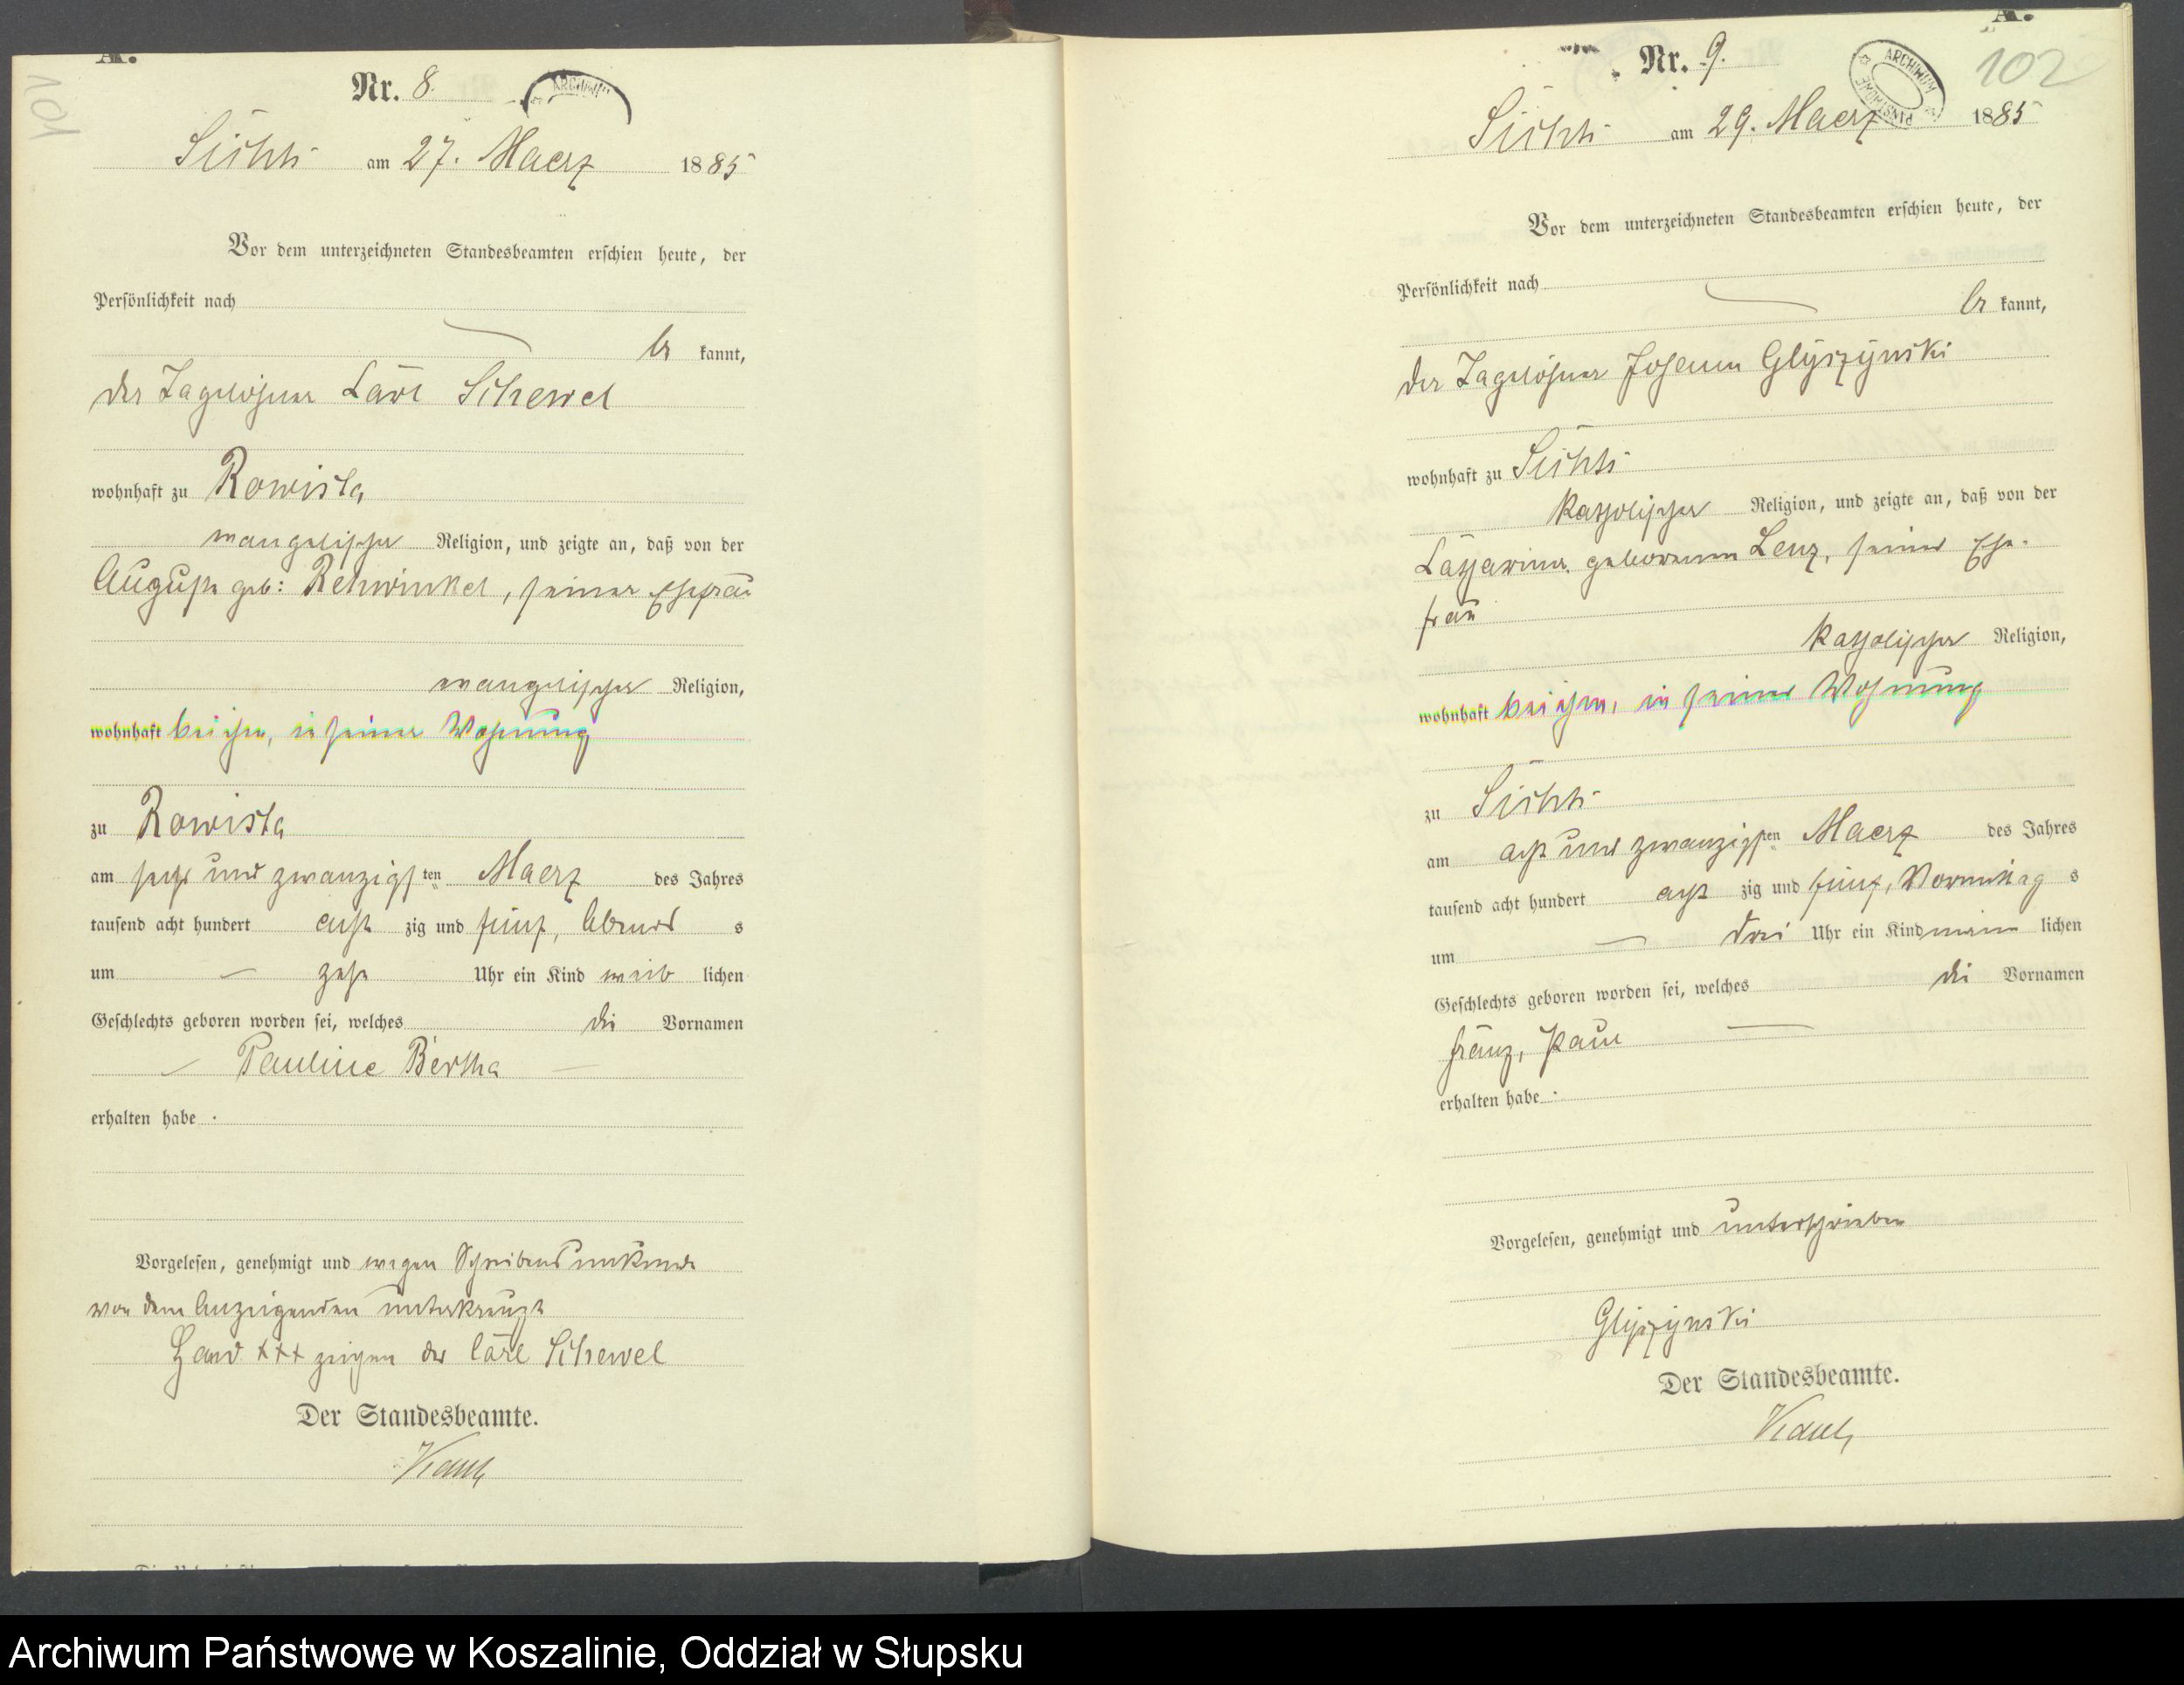 A.
101
Nr. 8.
ARCHIWUM
am 27. Maerz 1885
Vor dem unterzeichneten Standesbeamten erschien heute, der
Persönlichkeit nach
be kannt,
der Tagelöhner Carl Schewel
wohnhaft zu Rowista
evangelischer Religion, und zeigte an, daß von der
Auguste geb: Rehwinkel, seiner Ehefrau
evangelischer Religion,
wohnhaft bei ihm, in seiner Wohnung
zu Rowista
am sechs und zwanzigsten Maerz des Jahres
tausend acht hundert acht zig und fünf, Abends
um — zehn Uhr ein Kind weib lichen
Geschlechts geboren worden sei, welches die Vornamen
— Pauline Bertha —
erhalten habe.
Vorgelesen, genehmigt und wegen Schreibensunkunde
von dem Anzeigenden unterkreuzt
Hand +++ zeichen des Carl Schewel
Der Standesbeamte.
A.
102
Nr. 9.
ARCHIWUM PAŃSTWOWE
am 29. Maerz 1885
Vor dem unterzeichneten Standesbeamten erschien heute, der
Persönlichkeit nach
be kannt,
der Tagelöhner Johann Glyszynski
wohnhaft zu
katholischer Religion, und zeigte an, daß von der
Catharina geborenen Lenz, seiner Ehe-
frau
katholischer Religion,
wohnhaft bei ihm, in seiner Wohnung
zu
am acht und zwanzigsten Maerz des Jahres
tausend acht hundert acht zig und fünf, Vormittags
um — drei Uhr ein Kind männ lichen
Geschlechts geboren worden sei, welches die Vornamen
Franz, Paul —
erhalten habe.
Vorgelesen, genehmigt und unterschrieben
Glyszynski
Der Standesbeamte.
Archiwum Państwowe w Koszalinie, Oddział w Słupsku